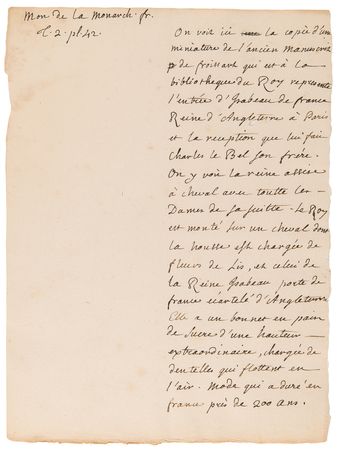 Mon de la Monarch. fr.
T. 2. pl. 42.
On voit ici la copie d'une
miniature de l'ancien manuscrit
de froissart qui est à la
bibliotheque du Roy represente
l'entrée d'Isabeau de france
Reine d'Angleterre à Paris
et la reception que lui fait
Charles le Bel son frère.
On y voit la reine assise
à cheval avec toutte les
Dames de sa suitte. Le Roy
est monté sur un cheval dont
la housse est chargée de
fleurs de Lis, et celui de
la Reine Isabeau porte de
france écartelé d'Angleterre
Elle a un bonnet en pain
de sucre d'une hauteur
extraordinaire, chargée de
dentelles qui flottent en
l'air. Mode qui a duré en
france près de 200 ans.